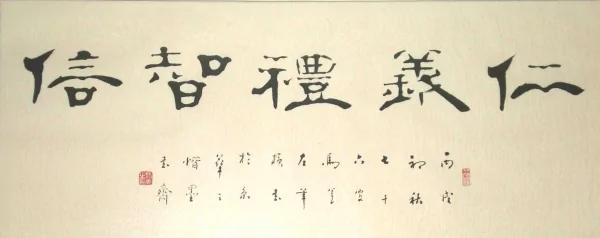 仁義禮智信
丙戌
初秋
七十
六叟
馬
左筆
於京
華
惜墨
齋